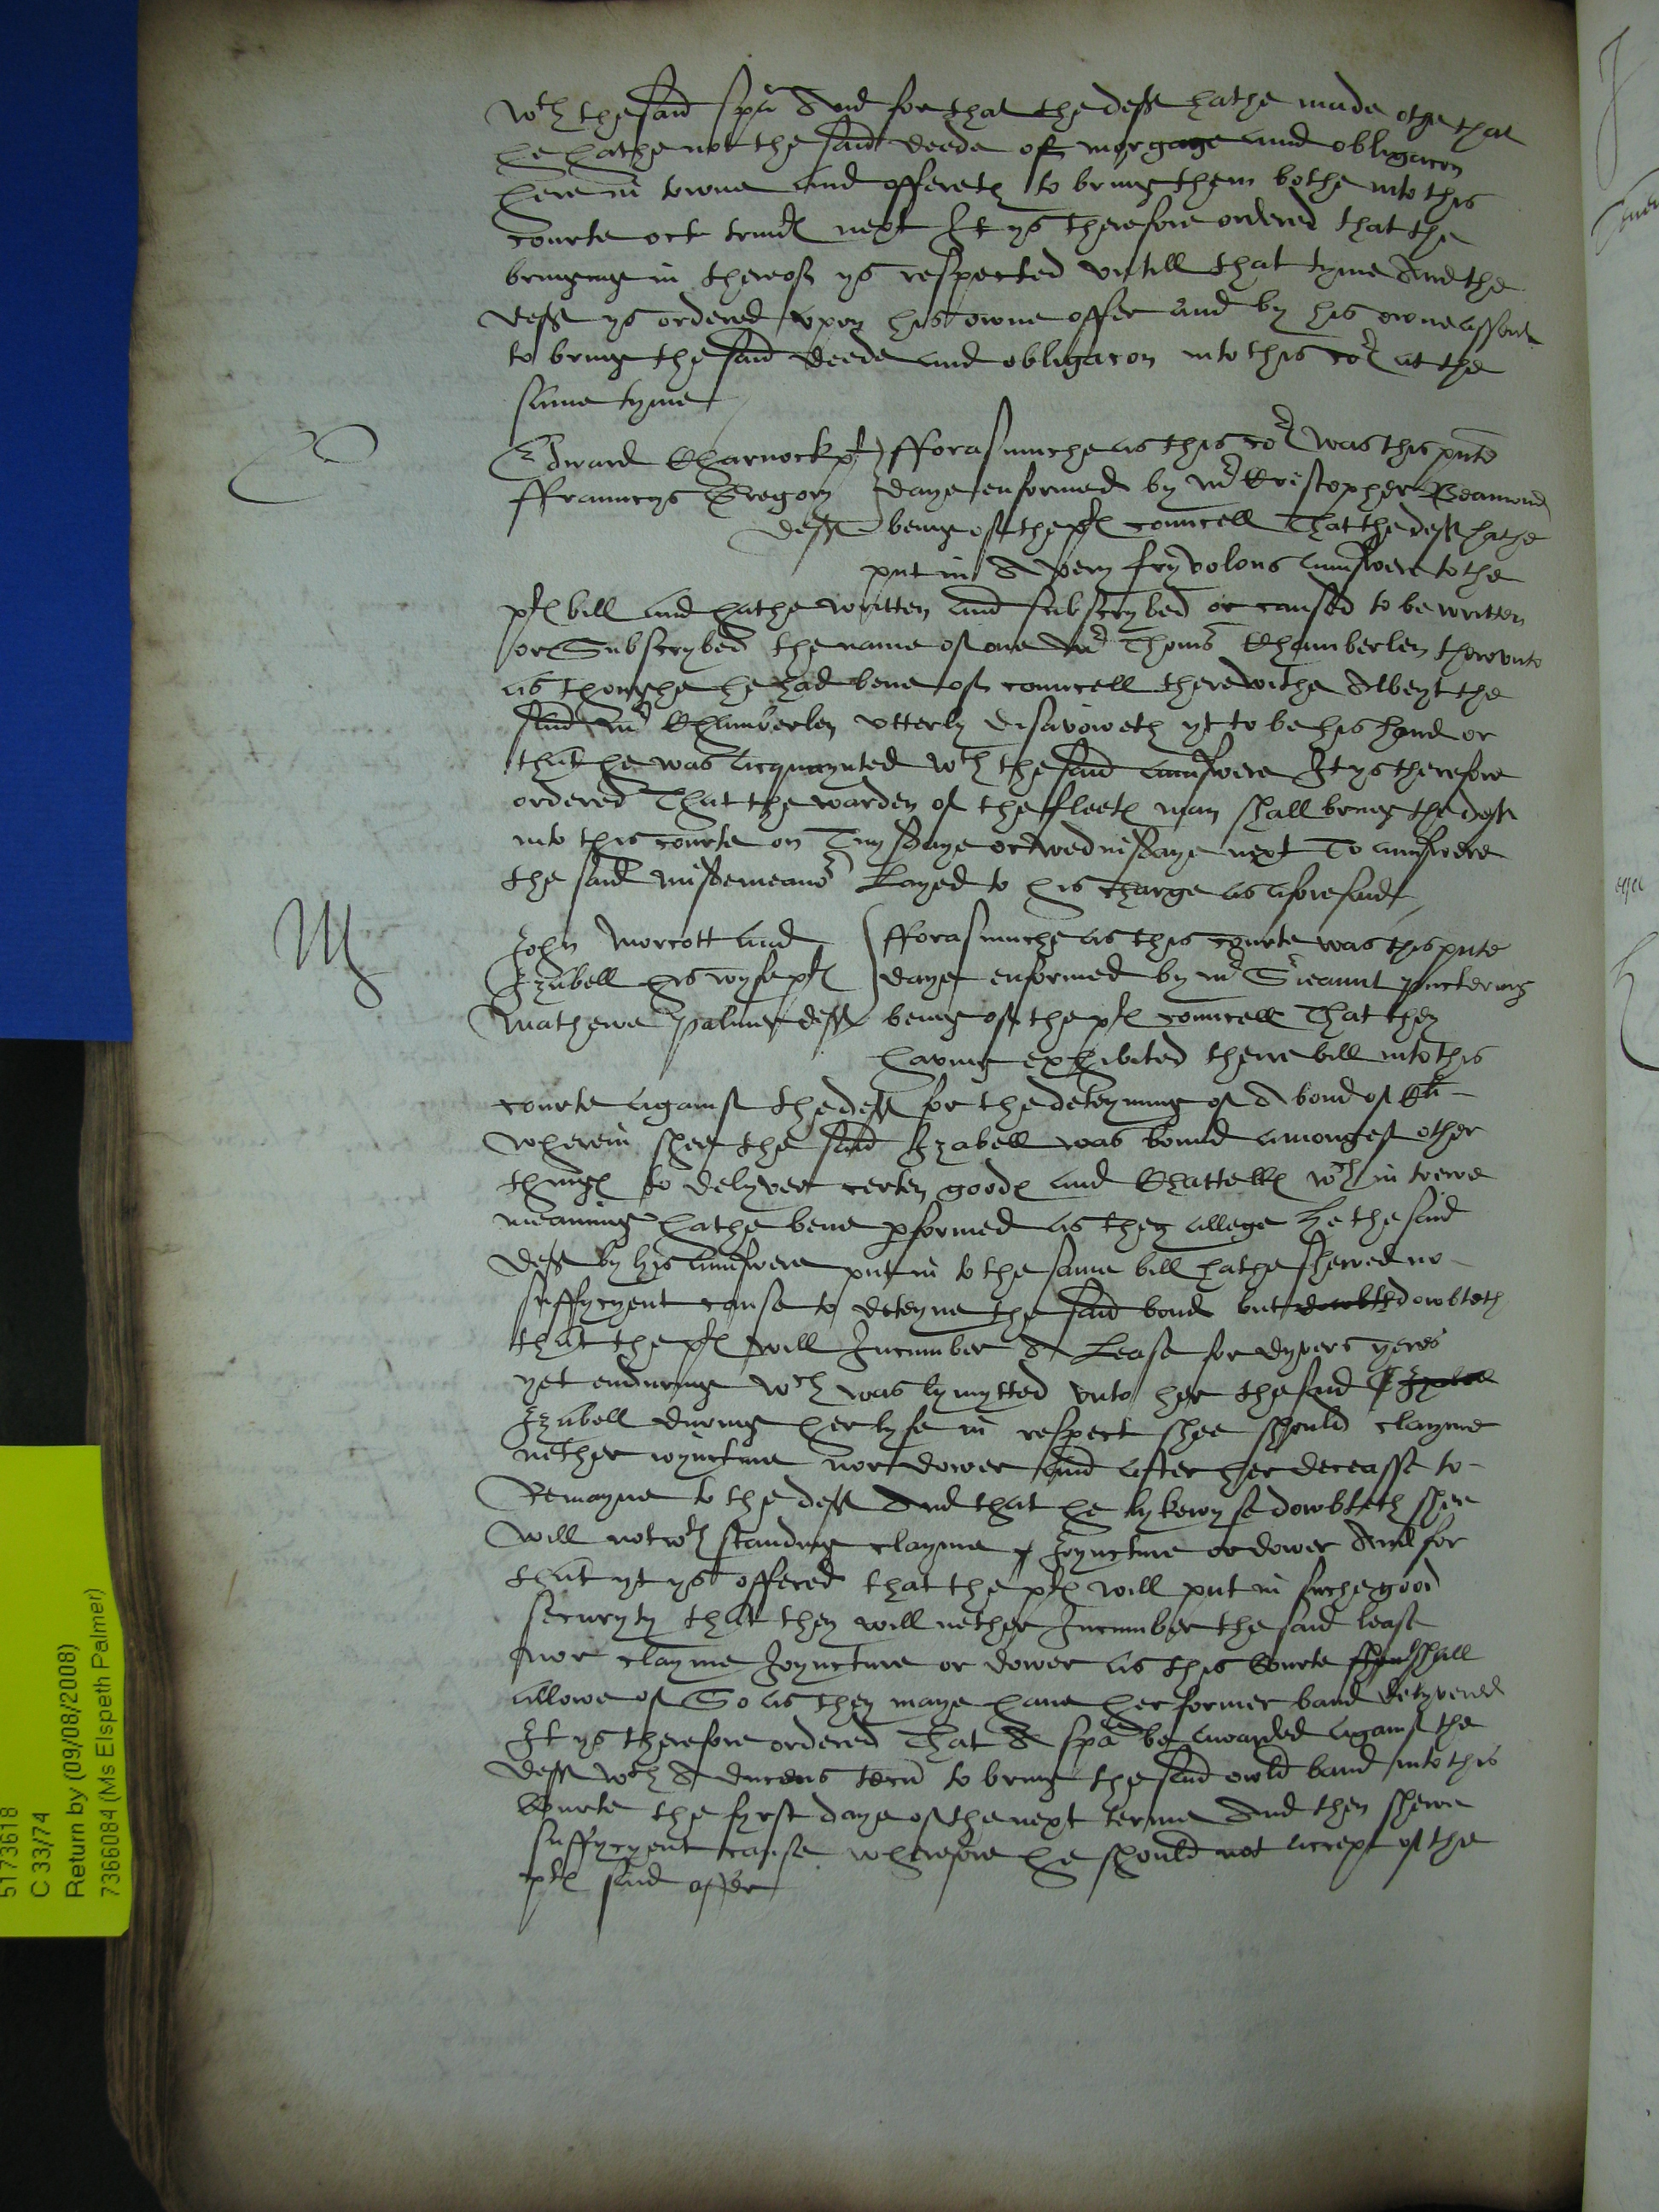 wth the said spa And for that the deft hathe made othe that
he hathe not the said deede of morgage and obligacon
here in towne and offereth to bring them bothe into this
courte oct trinit next It ys therefore ordered that the
bringing in thereof ys respected untill that tyme And the
deft ys ordered upon his owne offer and by his owne assent
to bring the said deede and obligacon into this cort at the
same tyme
C
Edward Charnock pt
ffrauncys Gregory
deft
fforasmuche as this cort was this pnte
daye enformed by Mr Cristopher Beamond
being of the ptes councell That the deft hathe
put in A very fryvolous aunswere to the
ptes bill and hathe written and subscrybed or caused to be written
or Subscrybed the name of one Mr Thoms Chamberlen therevnto
as thoughe he had bene of councell therewithe Albeyt the
said Mr Chamberlen vtterly disavoweth yt to be his hand or
that he was acquaynted wth the said aunswere It ys therefore
ordered That the warden of the fleete man shall bring the deft
into this courte on Tuysdaye or wednisdaye next To aunswere
the said misdemeanor Layed to his charge as aforesaid
M
John Morcott and
Izabell his wyfe ptes
Mathewe Palmer deft
fforasmuche as this courte was this pnte
daye enformed by Mr Sieaunt puckering
being of the ptes councell That they
having exhibited there bill into this
courte against the deft for the deteyning of A bond of Cli
wherein shee the said Izabell was bound amongest other
things to delyver certen goodes and Chattells wch in trewe
meaning hathe bene pformed as they allege he the said
deft by his aunswere put in to the same bill hathe shewed no
suffycyent cause to deteyne the said bond but dowbteth dowbteth
that the ptes will Incumber A Lease for dyvers yeres
yet enduring wch was lymytted vnto her the said Izabell
Izabell during her lyfe in respect shee should clayme
nether ioyncture nor dower and after her deceasse to
Remayne to the deft And that he lykewyse dowbteth shee
will notwthstanding clayme Joyncture or dower And for
that yt ys offered that the ptes will put in suche good
securyty that they will nether Incumber the said lease
nor clayme Joyncture or dower as this Courte shall shall
allowe of So as they maye have her former band delyvered
It ys therefore ordered That A spa be awarded against the
deft wth A ducens tecu to bring the said owld band into this
Courte the fyrst daye of the next terme And then shewe
suffycyent cause wherefore he should not accept of the
ptes said offer
5173618
C 33/74
Return by (09/08/2008)
7366084 (Ms Elspeth Palmer)